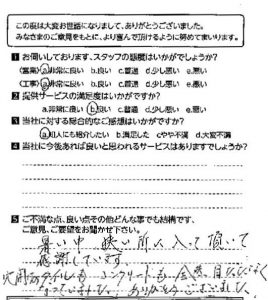 この度は大変お世話になりまして、ありがとうございました。
みなさまのご意見をもとに、より喜んで頂けるように努めてまいります。
1 お伺いしております、スタッフの態度はいかがでしょうか?
(営業) a.非常に良い b.良い c.普通 d.少し悪い e.悪い
(工事) a.非常に良い b.良い c.普通 d.少し悪い e.悪い
2 提供サービスの満足度はいかがですか?
a.非常に良い b.良い c.普通 d.少し悪い e.悪い
3 当社に対する総合的なご感想はいかがですか?
a.知人にも紹介したい b.満足した c.やや不満 d.大変不満
4 当社に今後あれば良いと思われるサービスはありますでしょうか?
5 ご不満な点、良い点その他どんな事でも結構です、
ご意見、ご要望をお聞かせ下さい。
暑い中 狭い所に入って頂いて
感謝しています。
タイルも コンクリートも 全然 目立たなく
なっていました。ありがとうございました